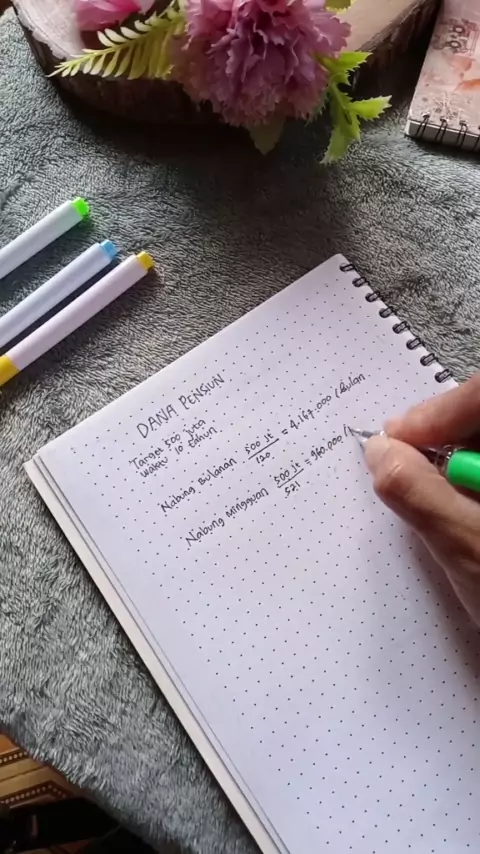 DANA PENSIUN
Target 500 juta
Waktu 10 tahun
Nabung bulanan 500 jt / 120 = 4.167.000 /bulan
Nabung mingguan 500 jt / 521 = 960.000 /